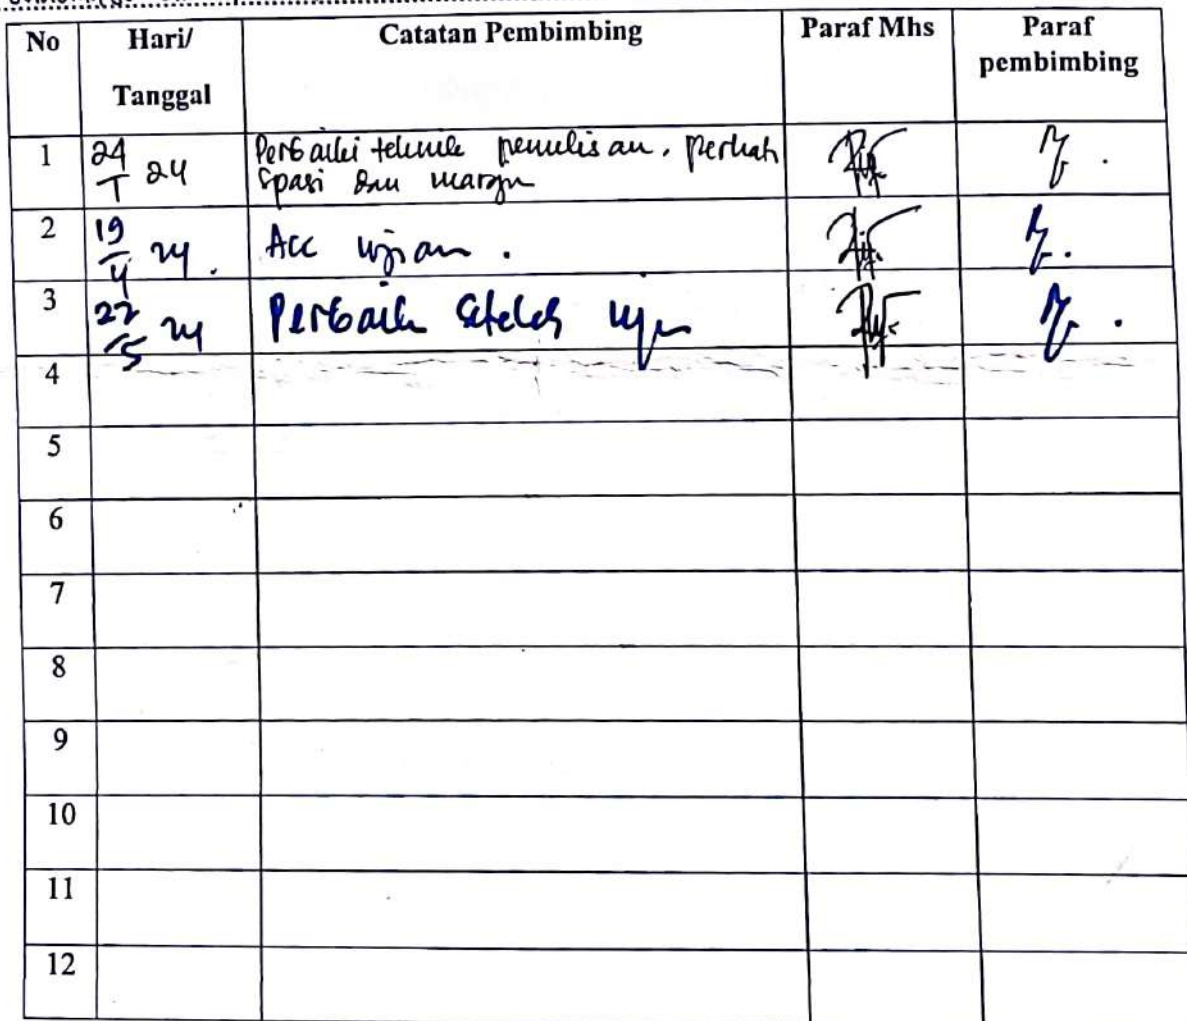 No Hari/ Tanggal Catatan Pembimbing Paraf Mhs Paraf pembimbing
1 24/1 24 Perbaiki teknik penulisan. Perhati
spasi dan margin
2 19/4 24. Acc ujian.
3 22/5 24 Perbaiki setelah ujian
4
5
6
7
8
9
10
11
12